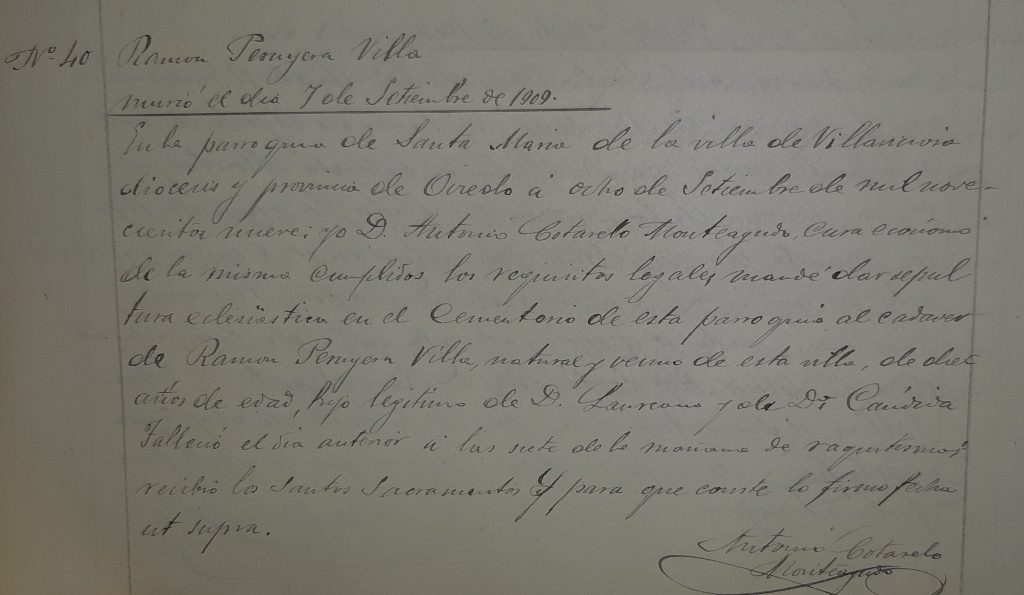 Nº 40 Ramon Peruyera Villa
murió el dia 7 de Setiembre de 1909.
En la parroquia de Santa Maria de la villa de Villaviciosa
diocesis y provincia de Oviedo á ocho de Setiembre de mil nove-
cientos nueve; yo D. Antonio Cotarelo Monteagudo, cura ecónomo
de la misma cumplidos los requisitos legales, mandé dar sepul
tura eclesiástica en el Cementerio de esta parroquia al cadaver
de Ramon Peruyera Villa, natural y vecino de esta villa, de diez
años de edad, hijo legitimo de D. Laureano y de Dª Cándida
Falleció el dia anterior á las siete de la mañana de raquitismo;
recibió los Santos Sacramentos Y para que conste lo firmo fecha
ut supra.
Antonio Cotarelo
Monteagudo